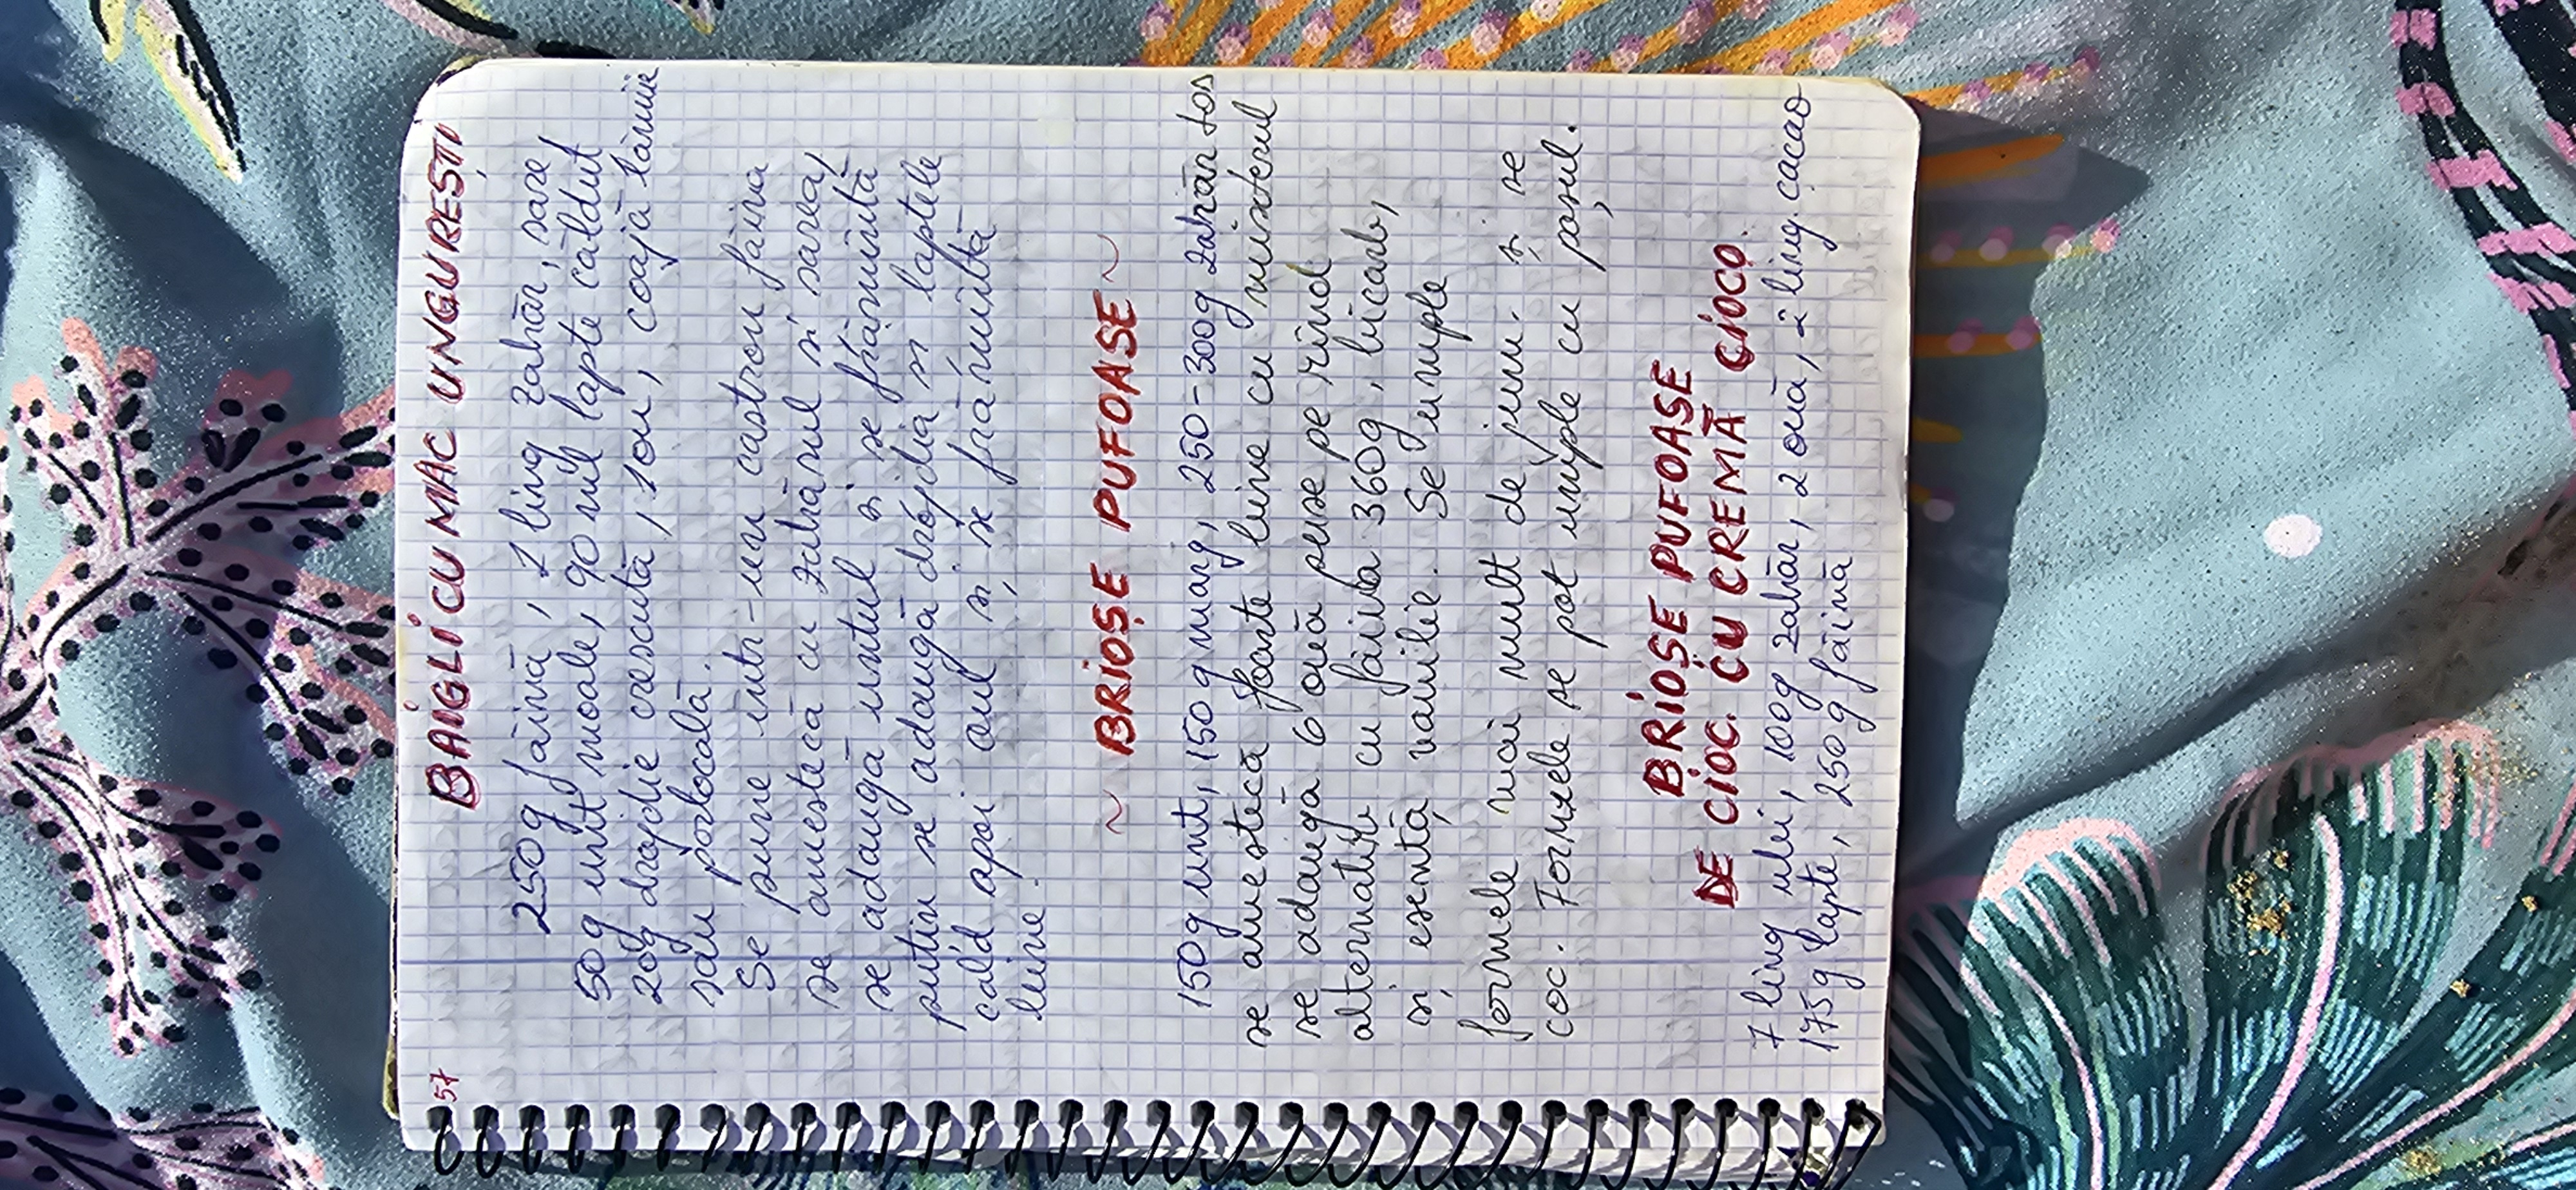 57
BAIGLI CU MAC UNGUREȘTI
250g făină, 1 ling zahăr, sare,
50g unt moale, 90 ml lapte căldut
20g drojdie crescută, 1 ou, coajă lămîie
sau portocală.
Se pune intr-un castron făina
se amestecă cu zahărul si sarea,
se adaugă untul si se frămîntă
puțin se adaugă drojdia si laptele
cald apoi oul și se frămîntă
bine.
~ BRIOȘE PUFOASE ~
150g unt, 150 g marg, 250-300g zahăr tos
se amestecă foarte bine cu mixterul
se adaugă 6 ouă puse pe rînd
alternativ cu făina 360g, bicarb,
și esență vanilie. Se umple
formele mai mult de jum. și se
coc. Formele se pot umple cu poșul.
BRIOȘE PUFOASE
DE CIOC. CU CREMĂ CIOCO.
7 ling ulei, 100g zahăr, 2 ouă, 2 ling. cacao
175g lapte, 250g făină